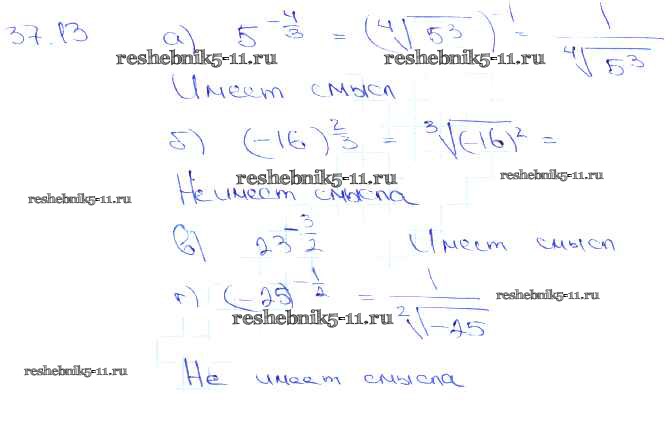 37.13 а) 5^{-\frac{4}{3}} = (\sqrt[4]{5^3})^{-1} = \frac{1}{\sqrt[4]{5^3}}
reshebnik5-11.ru reshebnik5-11.ru
Имеет смысл
б) (-16)^{\frac{2}{3}} = \sqrt[3]{(-16)^2} =
reshebnik5-11.ru reshebnik5-11.ru
Не имеет смысла
reshebnik5-11.ru
в) 23^{-\frac{3}{2}} Имеет смысл
г) (-25)^{-\frac{1}{2}} = \frac{1}{\sqrt[2]{-25}}
reshebnik5-11.ru reshebnik5-11.ru
reshebnik5-11.ru
Не имеет смысла